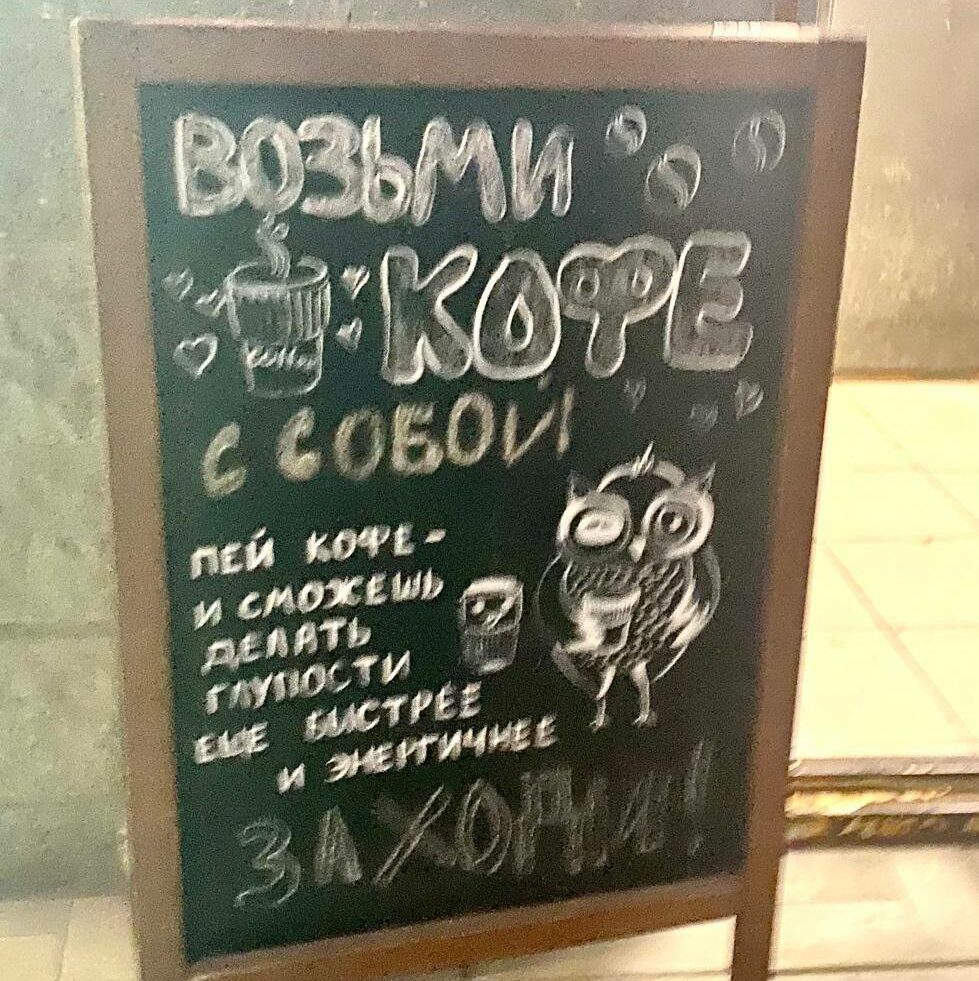 ВОЗЬМИ
КОФЕ
coffee
С СОБОЙ
ПЕЙ КОФЕ -
И СМОЖЕШЬ
ДЕЛАТЬ
ГЛУПОСТИ
ЕЩЕ БЫСТРЕЕ
И ЭНЕРГИЧНЕЕ
ЗАХОДИ!